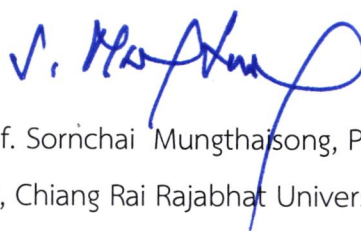 f. Sornchai Mungthaisong, P
, Chiang Rai Rajabhat Univer